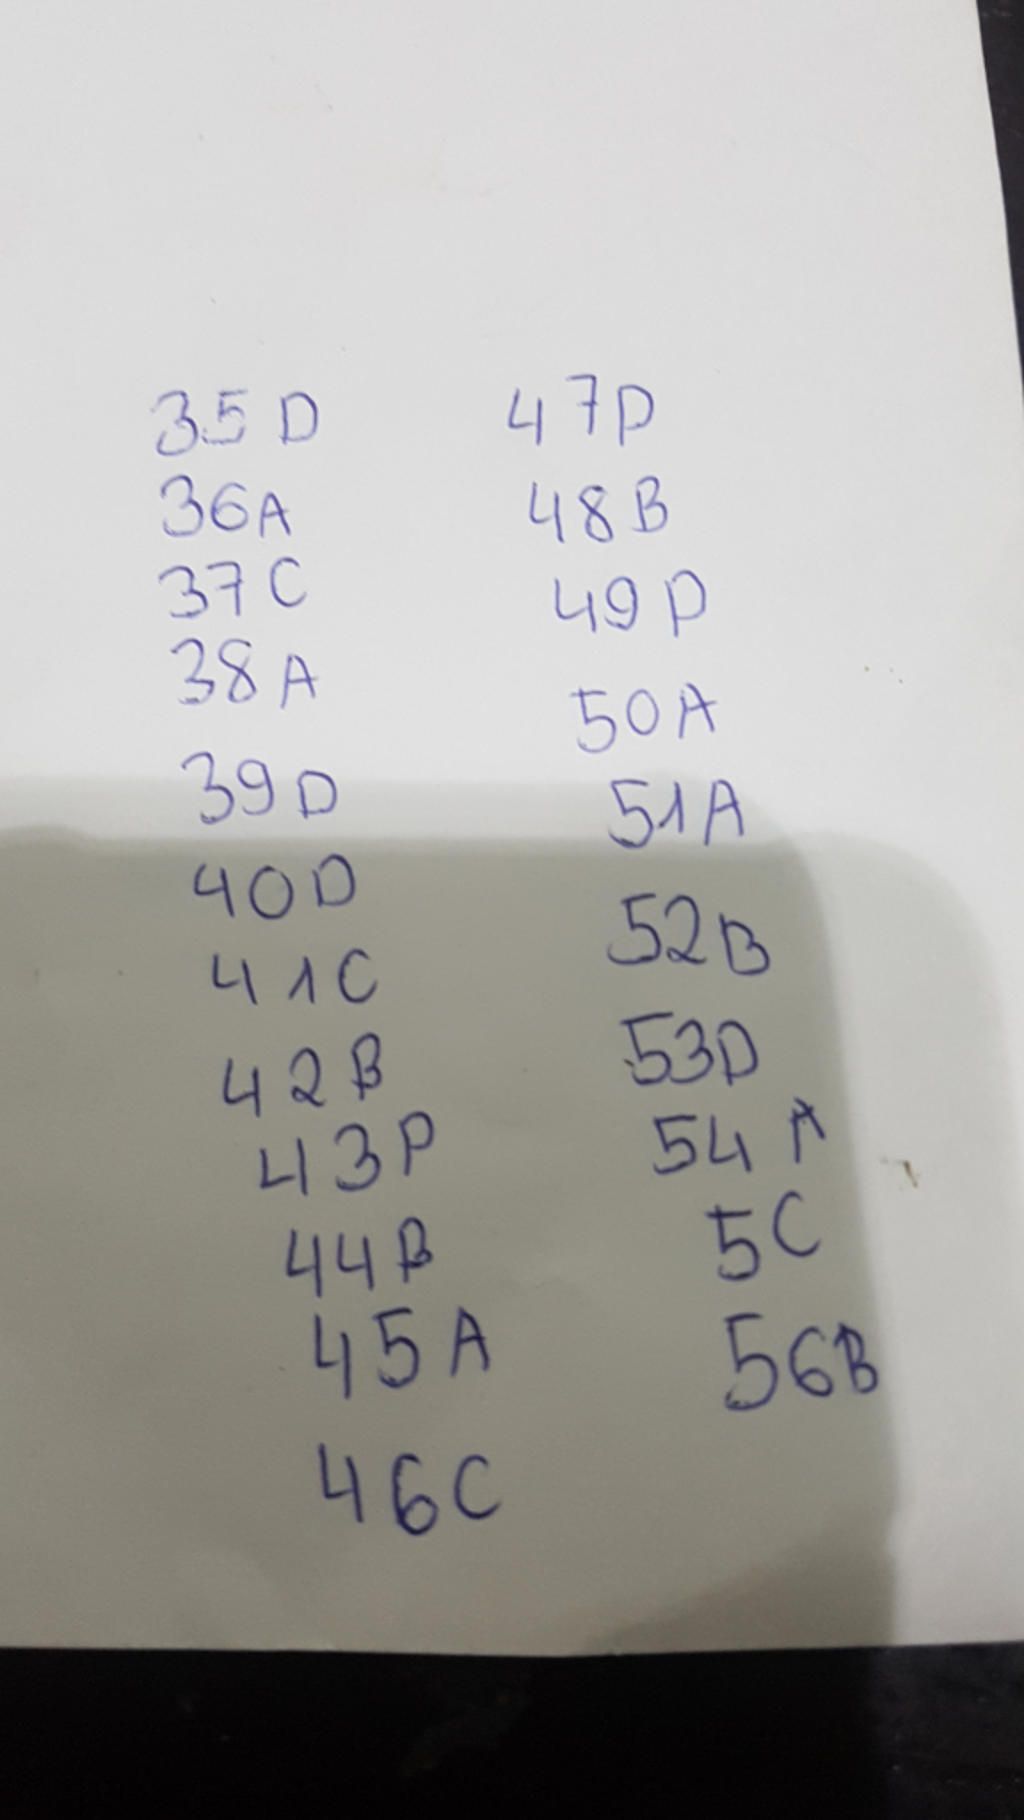 35 D
36A
37 C
38 A
39 D
40 D
41 C
42 B
43 P
44 B
45 A
46 C
47 D
48 B
49 D
50 A
51 A
52 B
53 D
54 A
5 C
56 B